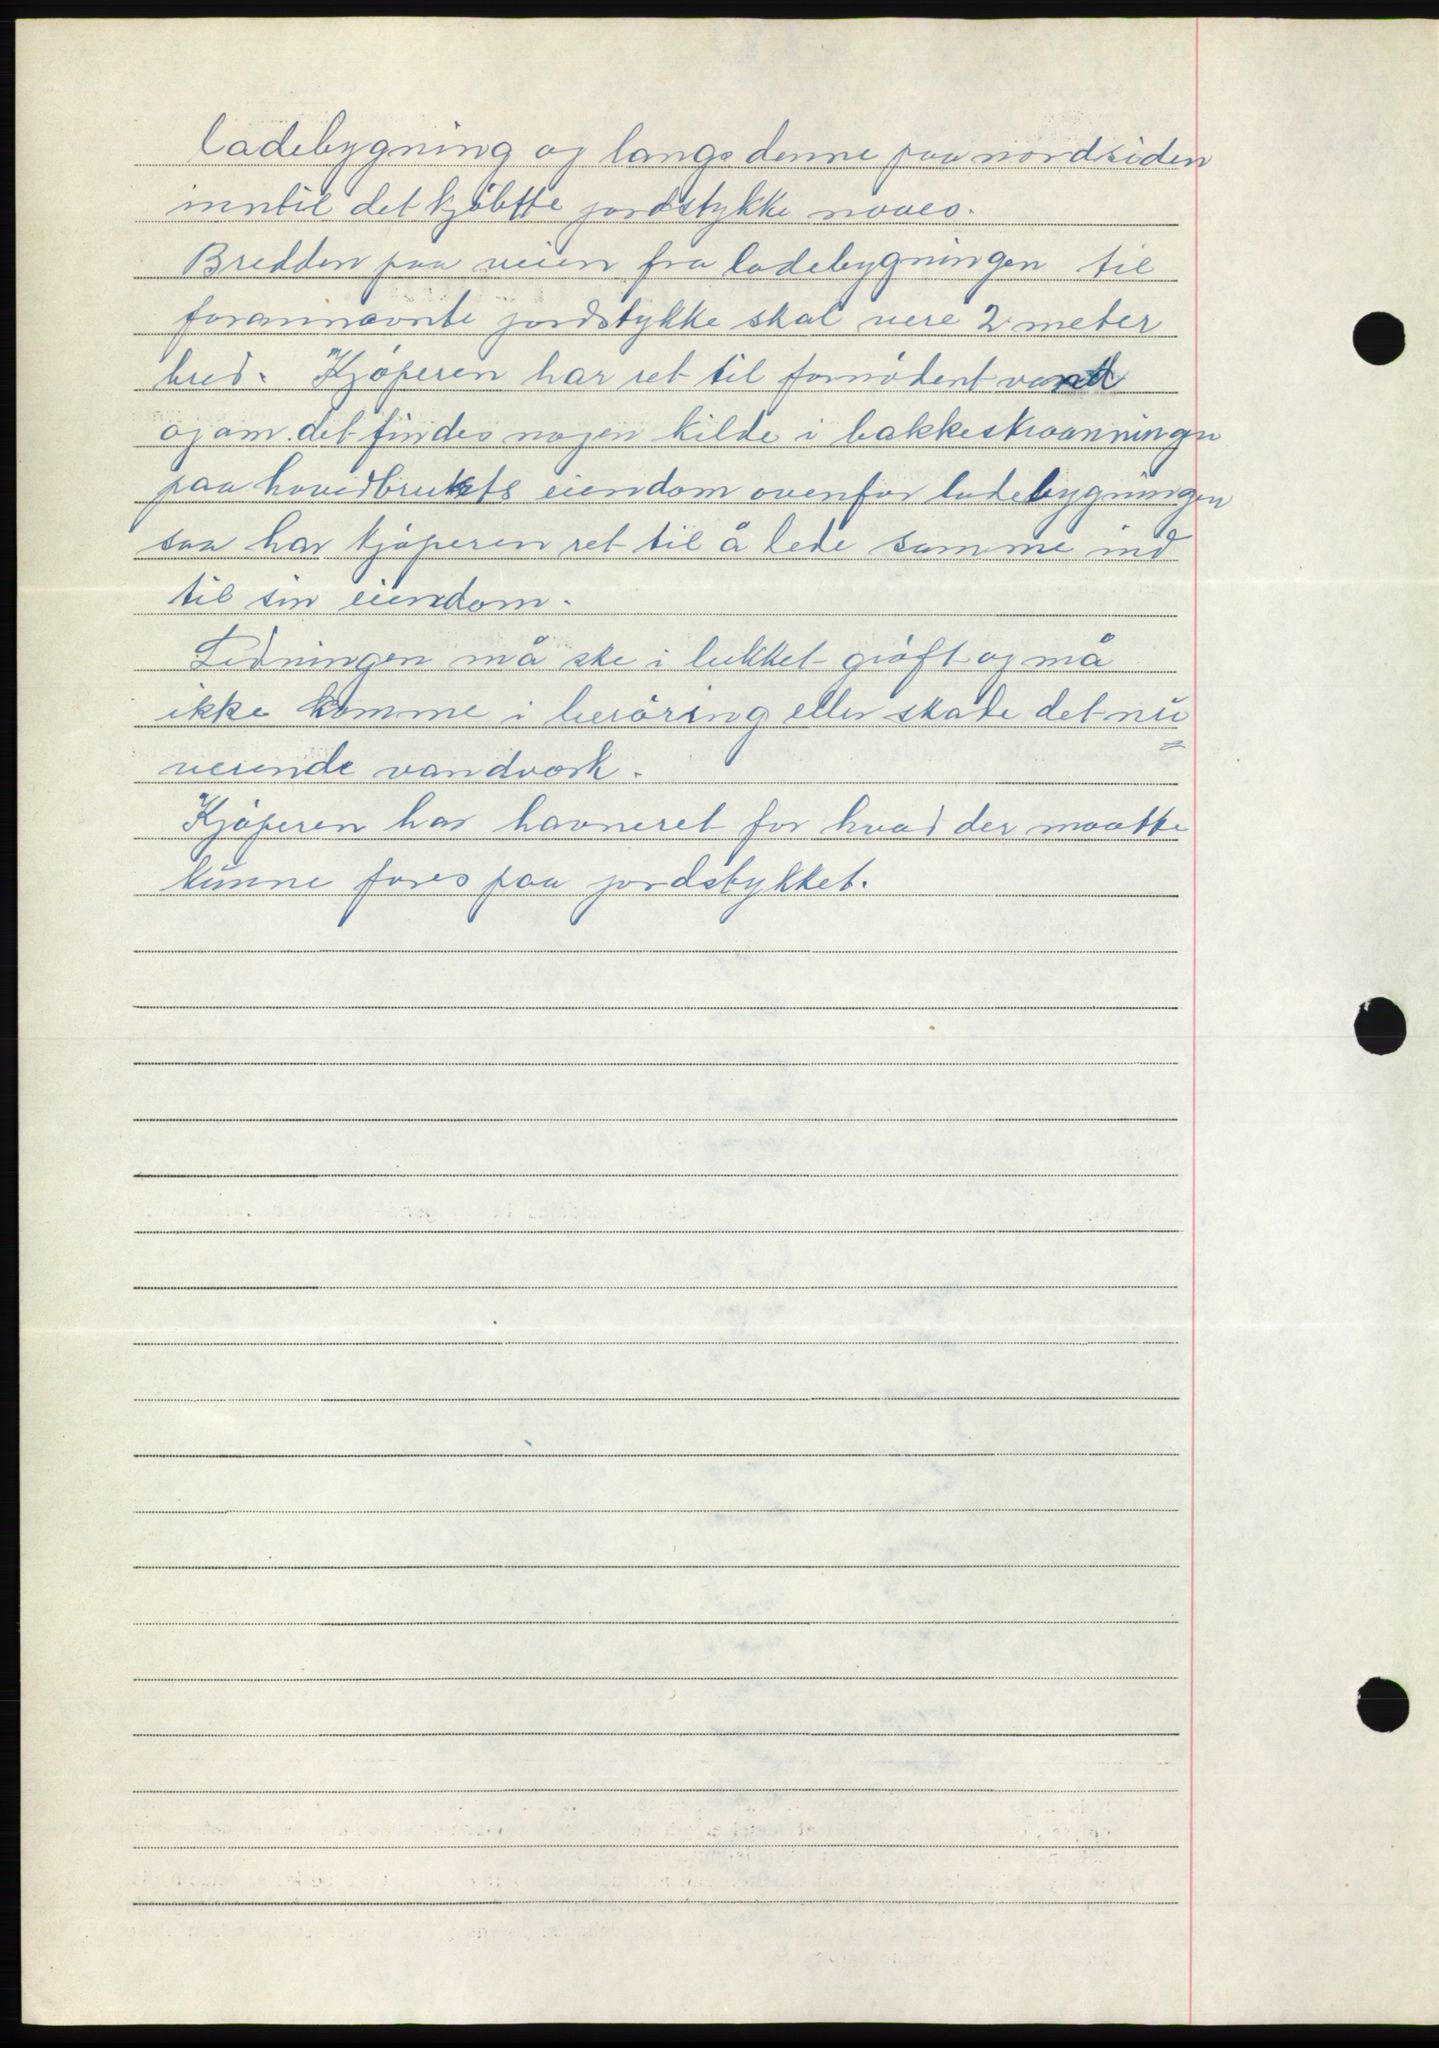 ladebygning og langs denne paa nordsiden
inntil det kjöbtte jordstykke naaes.
Bredden paa veien fra ladebygningen til
forannævnte jordstykke skal vere 2 meter
bred. Kjöperen har ret til fornödent vand
og om det findes nogen kilde i bakkeskraanningen
paa hovedbrukets eiendom ovenfor ladebygningen
saa har kjöperen ret til å lede samme ind
til sin eiendom.
Ledningen må ske i lukket gröft og må
ikke komme i beröring eller skade det nu=
verende vandverk.
Kjöperen har havneret for hvad der maatte
kunne fores paa jordstykket.